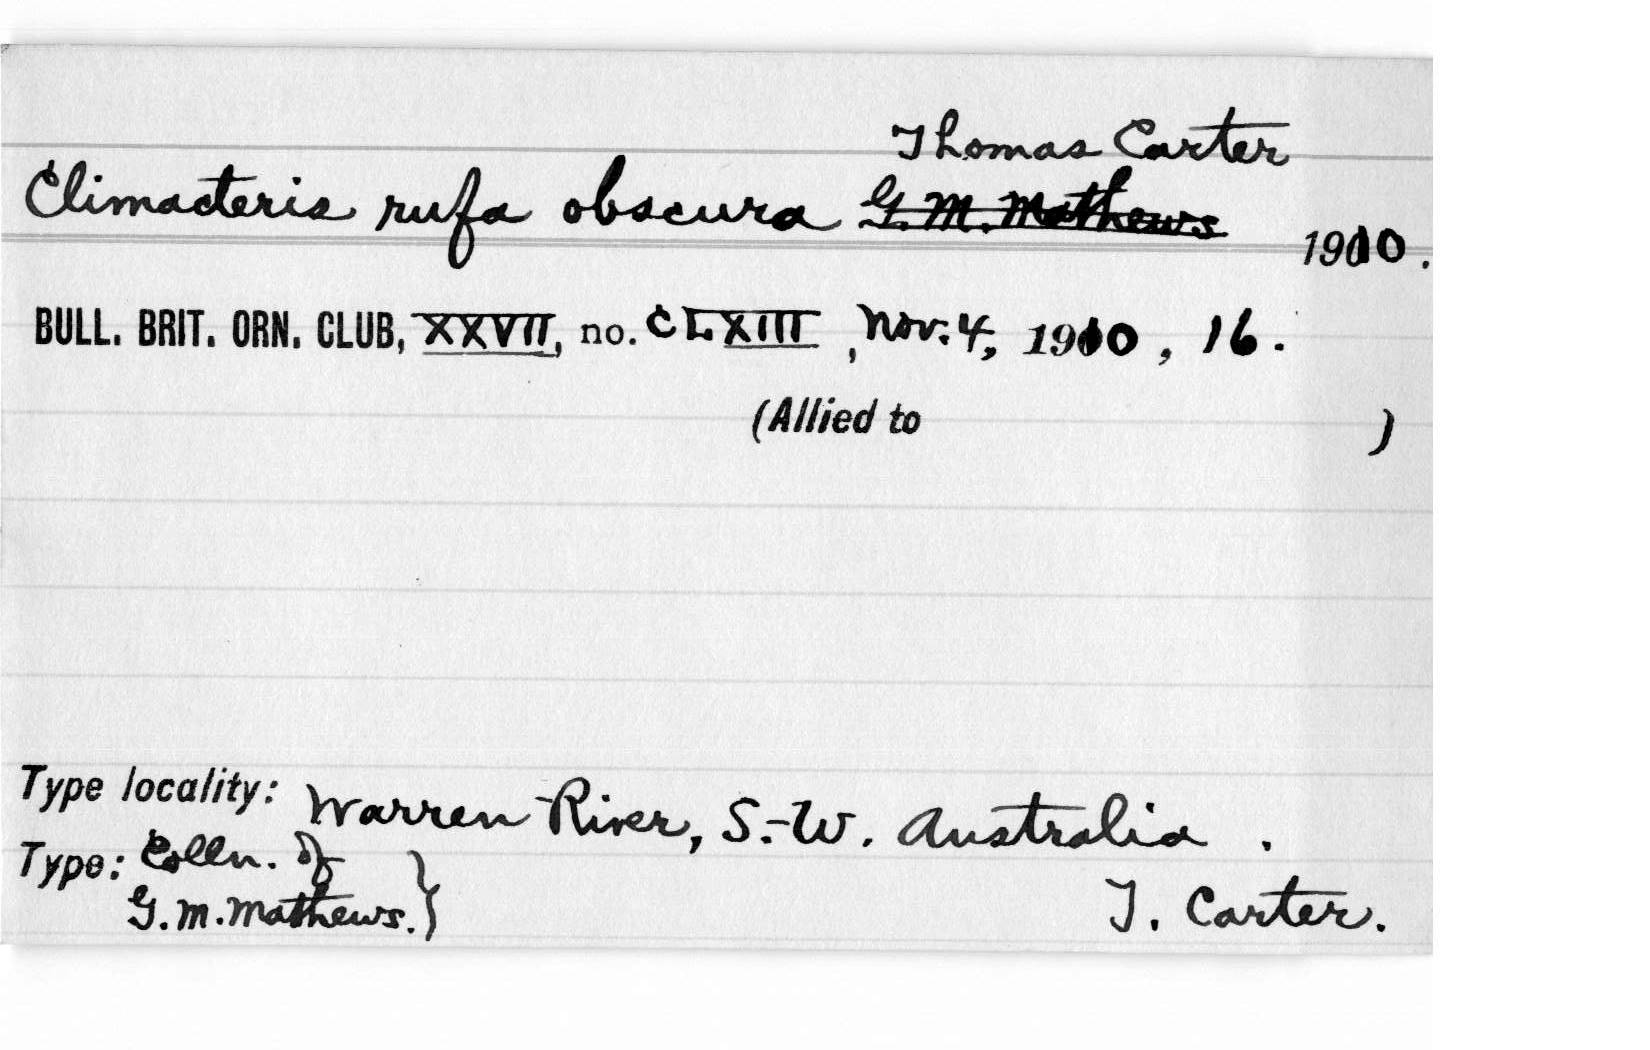 Thomas Carter
Climacteris rufa obscura G. M. Mathews 1910.
BULL. BRIT. ORN. CLUB, XXVII, no. CLXIII, Nov. 4, 1910, 16.
(Allied to )
Type locality: Warren River, S.-W. Australia.
Type: Colln. of
G. M. Mathews. } T. Carter.